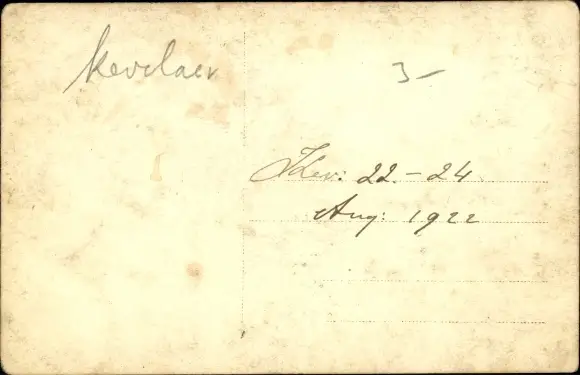 Kevelaer
3-
Kev: 22-24
Aug: 1922